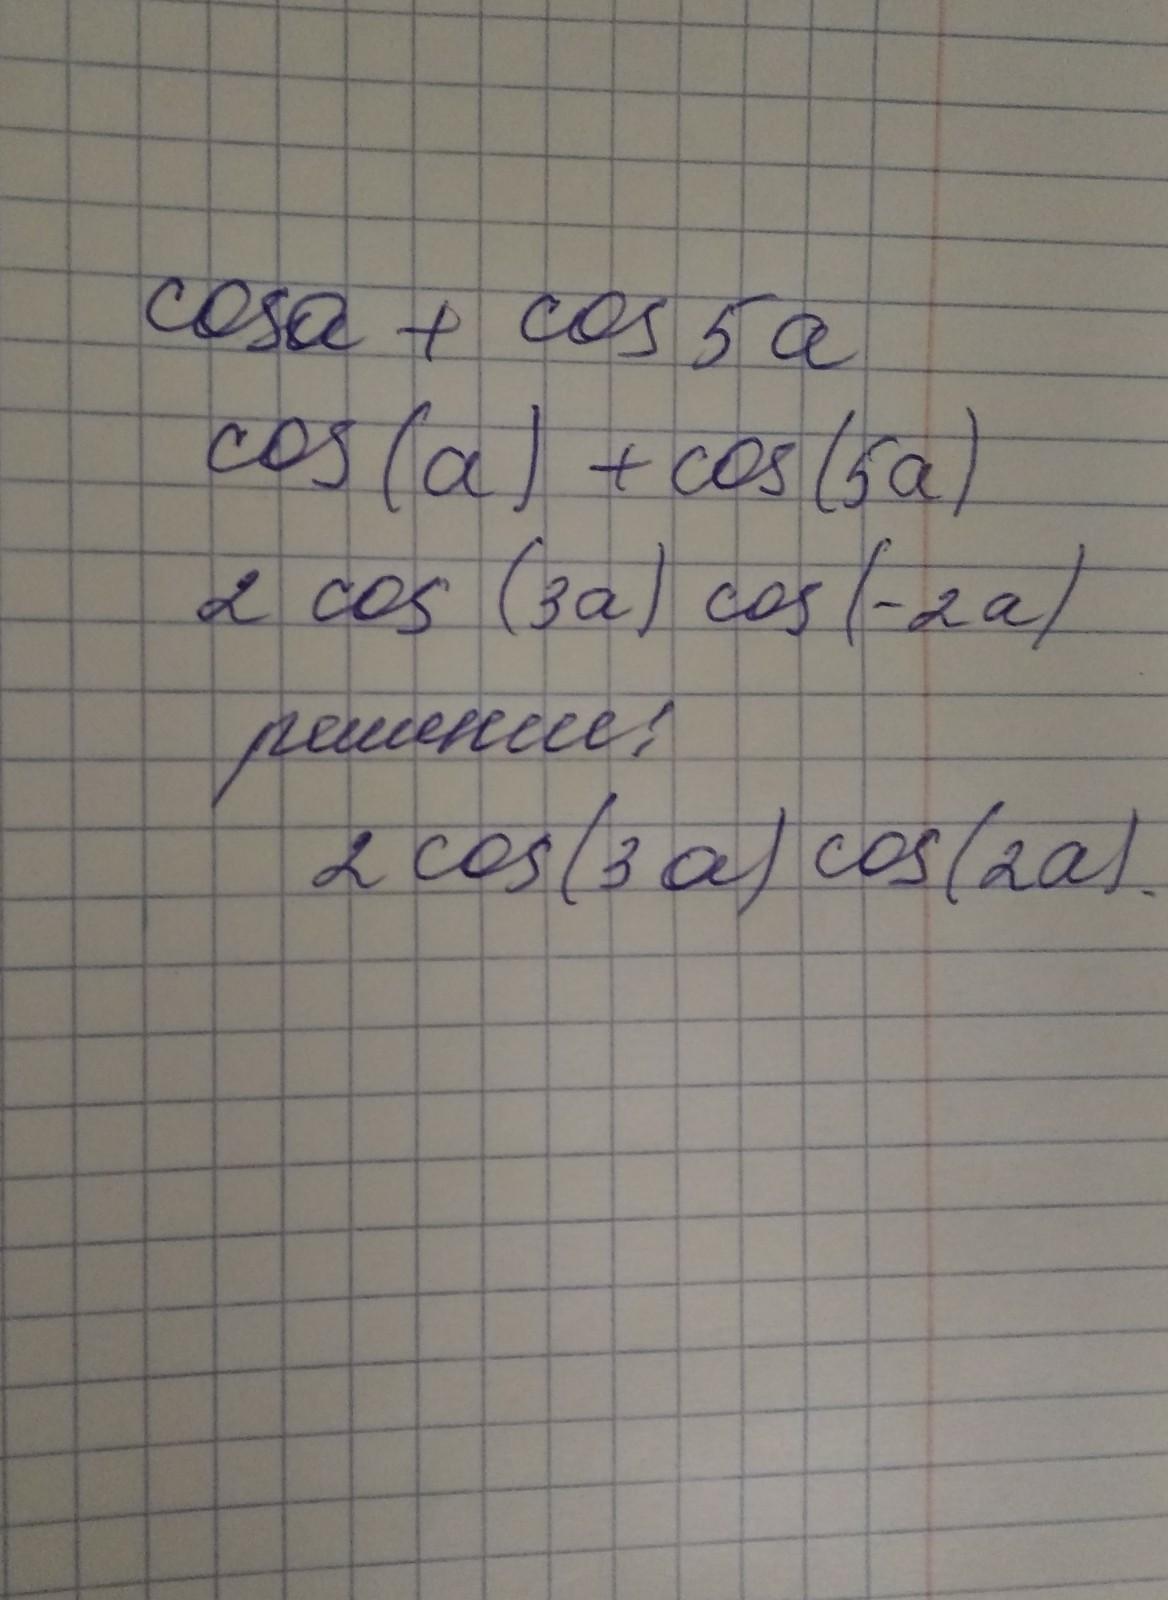 cosa + cos 5a
cos(a) + cos(5a)
2 cos (3a) cos(-2a)
решение:
2 cos(3a) cos(2a).